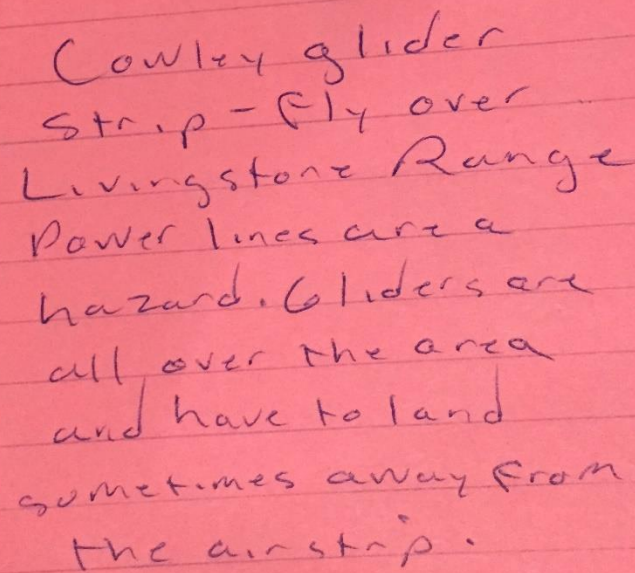 Cowley glider
Strip - Fly over
Livingstone Range
Power lines are a
hazard. Gliders are
all over the area
and have to land
sometimes away from
the airstrip.